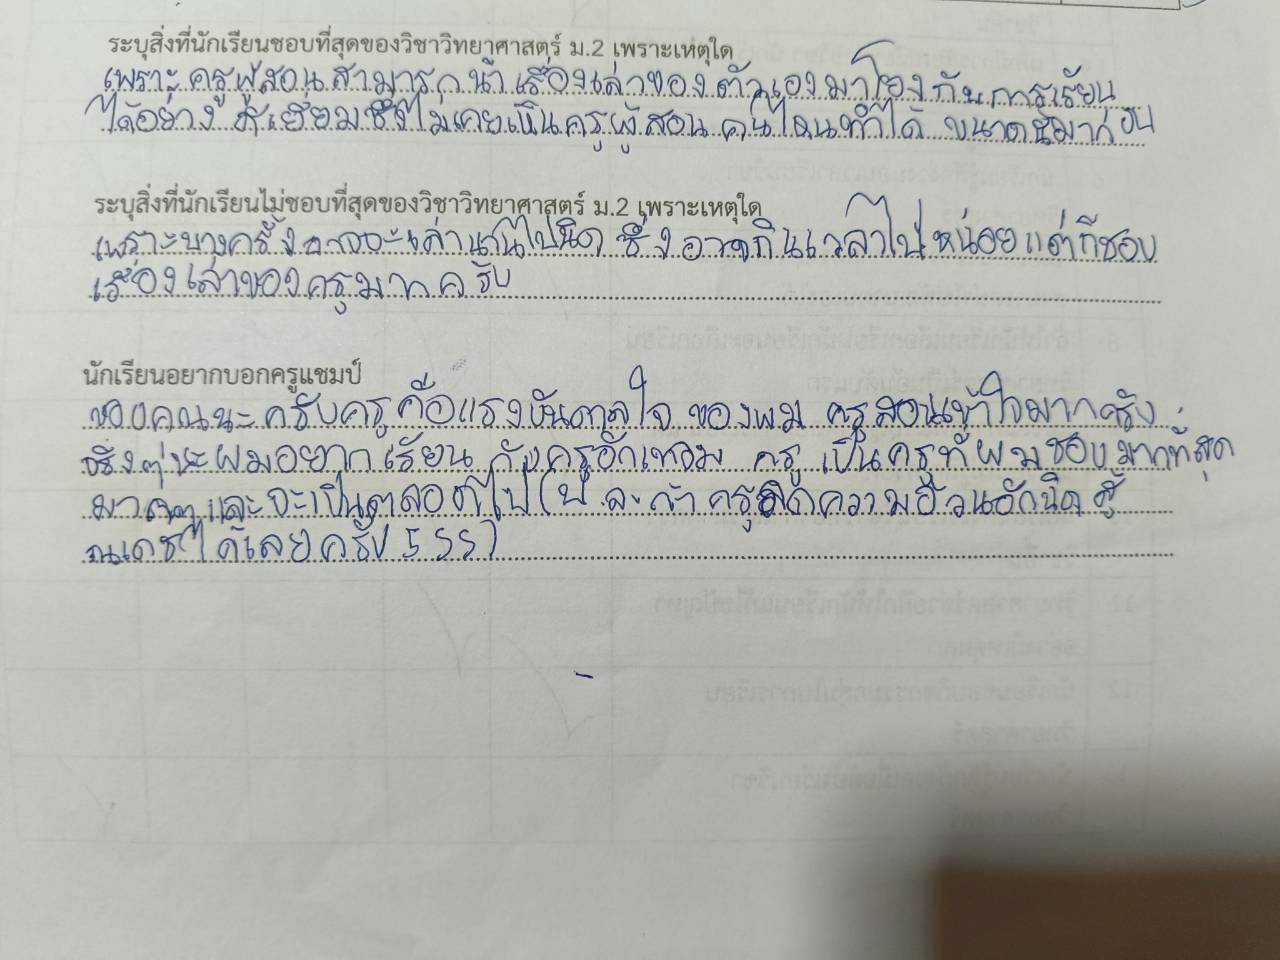 ระบุสิ่งที่นักเรียนชอบที่สุดของวิชาวิทยาศาสตร์ ม.2 เพราะเหตุใด
เพราะครูผู้สอนสามารถนำเรื่องเล่าของตัวเองมาโยงกับการเรียน
ได้อย่างดีเยี่ยมซึ่งไม่เคยเห็นครูผู้สอนคนไหนทำได้ขนาดนี้มาก่อน
ระบุสิ่งที่นักเรียนไม่ชอบที่สุดของวิชาวิทยาศาสตร์ ม.2 เพราะเหตุใด
เพราะบางครั้งอาจจะเล่านานไปนิด ซึ่งอาจกินเวลาไปหน่อยแต่ก็ชอบ
เรื่องเล่าของครูมากครับ
นักเรียนอยากบอกครูแชมป์
ขอบคุณนะครับครูคือแรงบันดาลใจของผม ครูสอนเข้าใจมากครับ
จริงๆนะผมอยากเรียนกับครูอีกเทอม ครูเป็นครูที่ผมชอบมากที่สุด
มากๆและจะเป็นตลอดไป (ปล.ถ้าครูลดความอ้วนอีกนิดสู้
ณเดชได้เลยครับ 555)